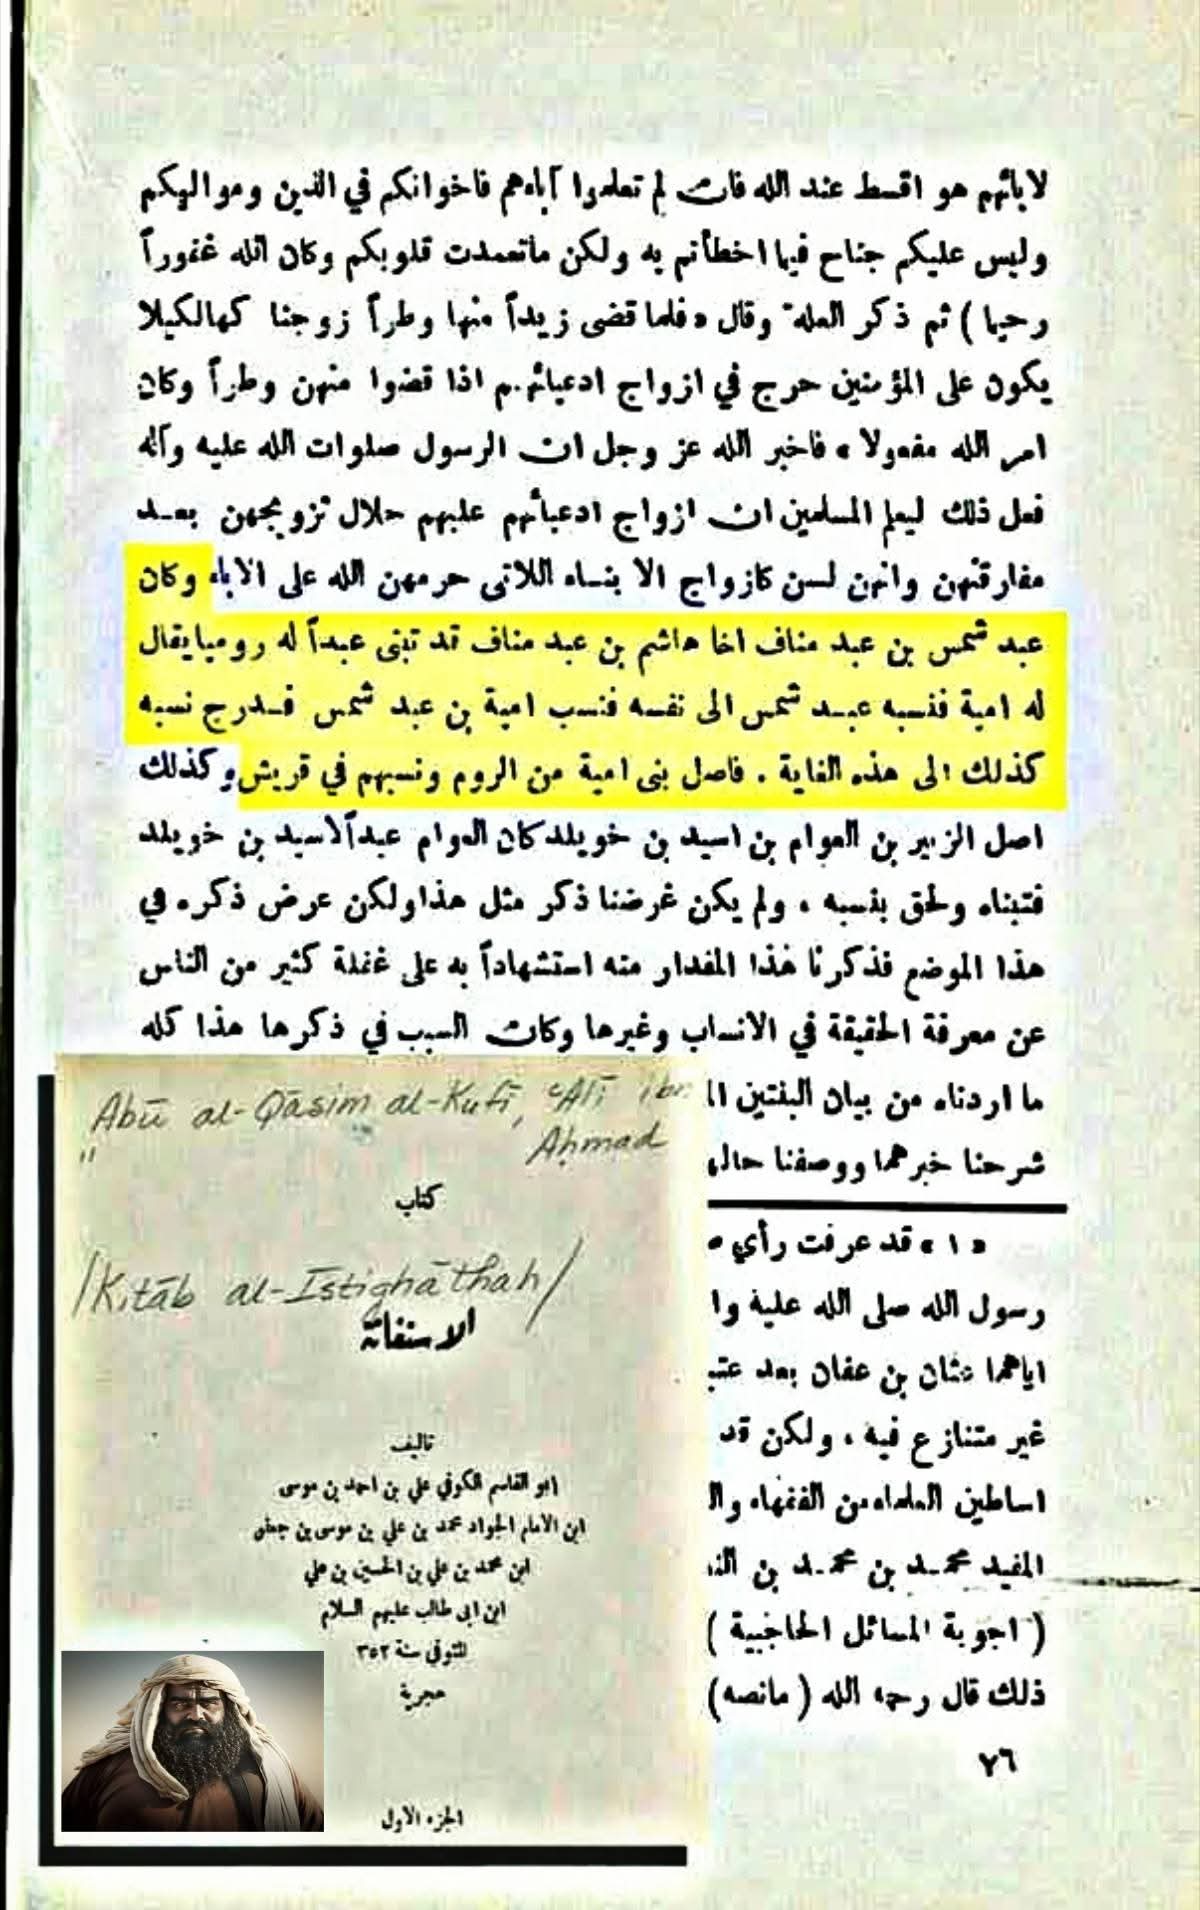 لابائهم هو اقسط عند الله فان لم تعلموا آباءهم فاخوانكم في الدين ومواليكم
وليس عليكم جناح فيما اخطأتم به ولكن ماتعمدت قلوبكم وكان الله غفوراً
رحيما ) ثم ذكر العلة وقال « فلما قضى زيداً منها وطراً زوجنا كهالكيلا
يكون على المؤمنين حرج في ازواج ادعيائهم اذا قضوا منهن وطراً وكان
امر الله مفعولا » فاخبر الله عز وجل ان الرسول صلوات الله عليه وآله
فعل ذلك ليعلم المسلمين ان ازواج ادعيائهم عليهم حلال تزويجهن بعد
مفارقتهن وانهن لسن كازواج الابناء اللاتى حرمهن الله على الاباء وكان
عبد شمس بن عبد مناف اخا هاشم بن عبد مناف قد تبنى عبداً له روميا يقال
له امية فنسبه عبد شمس الى نفسه فنسب امية بن عبد شمس فدرج نسبه
كذلك الى هذه الغاية . فاصل بنى امية من الروم ونسبهم في قريش وكذلك
اصل الزبير بن العوام بن اسيد بن خويلد كان العوام عبداً لاسيد بن خويلد
فتبناه ولحق بنسبه ، ولم يكن غرضنا ذكر مثل هذا ولكن عرض ذكره في
هذا الموضع فذكرنا هذا المقدار منه استشهاداً به على غفلة كثير من الناس
عن معرفة الحقيقة في الانساب وغيرها وكان السبب في ذكرها هذا كله
ما اردناه من بيان البنتين ال
شرحنا خبرهما ووصفنا حاله
« ١ » قد عرفت رأي
رسول الله صلى الله عليه وا
اياهما عثمان بن عفان بعد عت
غير متنازع فيه ، ولكن قد
اساطين العلماء من الفقهاء وال
المفيد محمد بن محمد بن الن
( اجوبة المسائل الحاجبية )
ذلك قال رحمه الله ( مانصه)
٧٦
Abū al-Qāsim al-Kufī, ʿAlī ibn
Aḥmad
كتاب
/Kitāb al-Istighāthah/
الاستغاثة
تاليف
ابو القاسم الكوفي علي بن احمد بن موسى
ابن الامام الجواد محمد بن علي بن موسى بن جعفر
ابن محمد بن علي بن الحسين بن علي
ابن ابى طالب عليهم السلام
المتوفى سنة ٣٥٢
هجرية
الجزء الاول